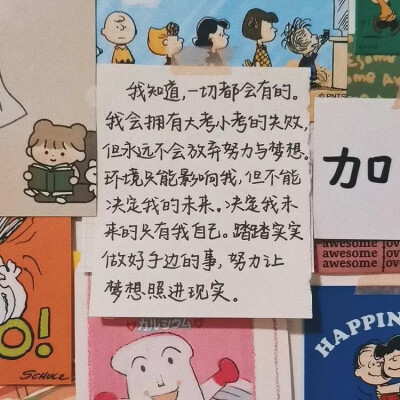 我知道，一切都会有的。
我会拥有大考小考的失败，
但永远不会放弃努力与梦想。
环境只能影响我，但不能
决定我的未来。决定我未
来的只有我自己。踏踏实实
做好手边的事，努力让
梦想照进现实。
加
awesome
awesome
awesome
O!
SCHULZ
カルシウム
HAPPIN